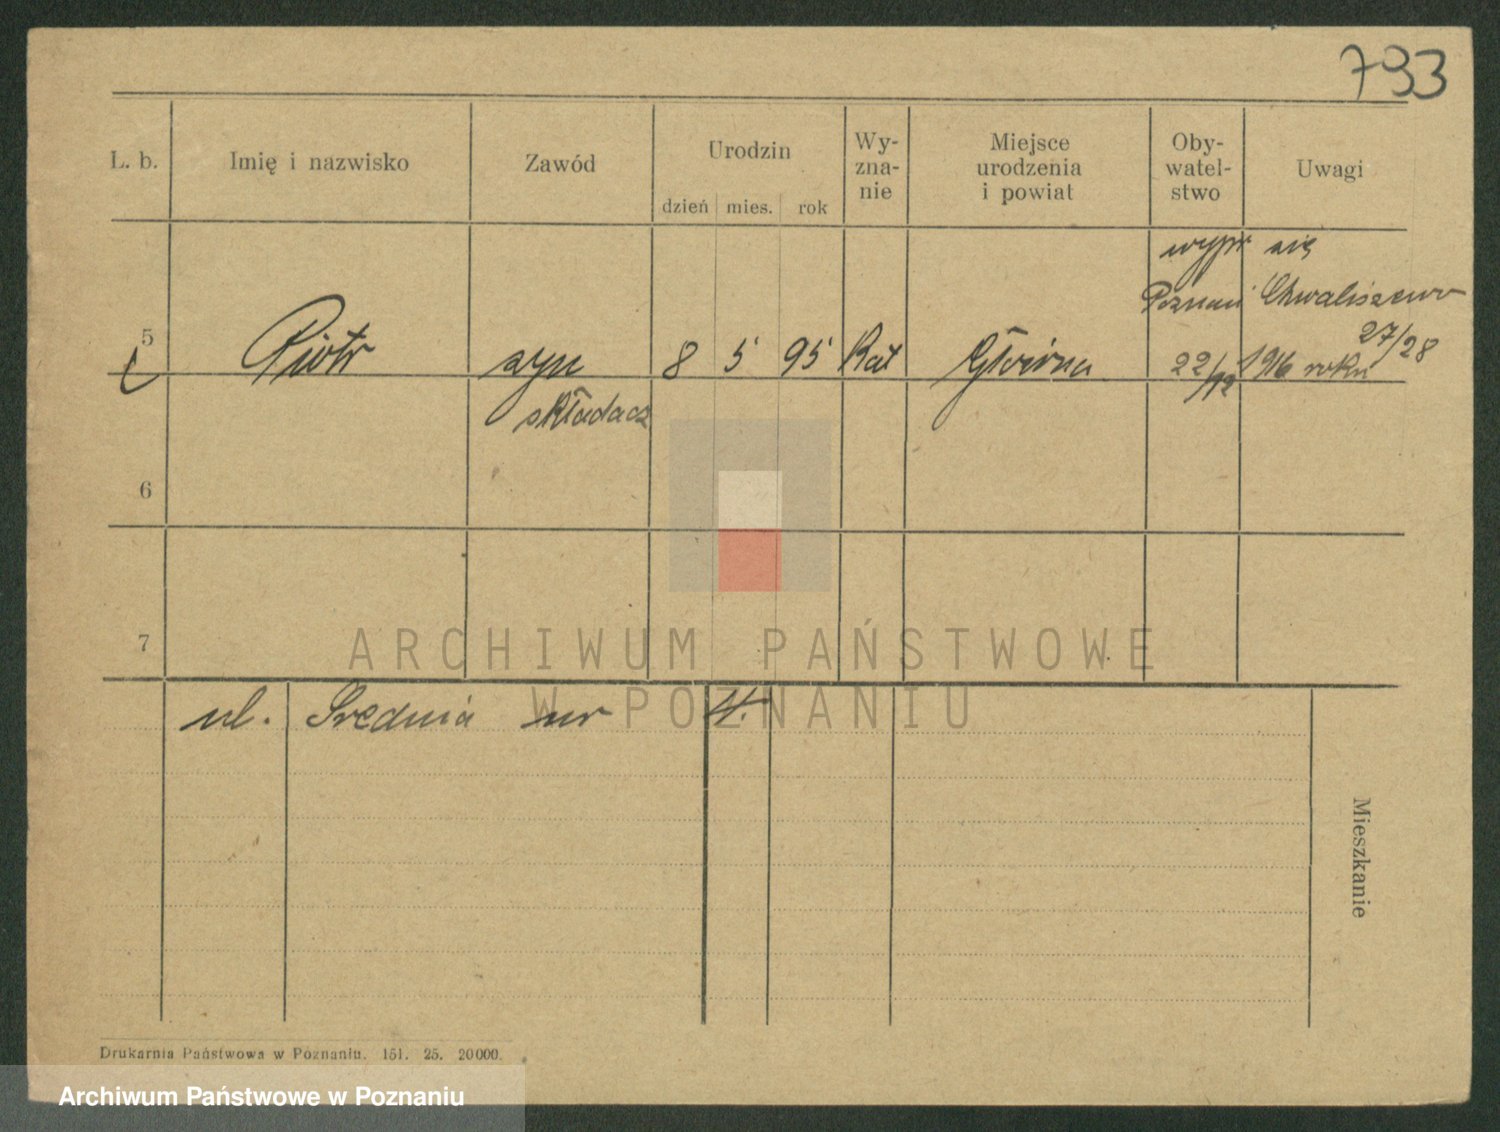 793
L. b. Imię i nazwisko Zawód Urodzin dzień mies. rok Wy-zna-nie Miejsce urodzenia i powiat Oby-watel-stwo Uwagi
wypr się
Poznań Chwaliszewo
27/28
5 Piotr syn 8 5 95 Kat Główna 22/12 1916 roku
składacz
6
7
ARCHIWUM PAŃSTWOWE
W POZNANIU
ul. Średnia nr 4.
Mieszkanie
Drukarnia Państwowa w Poznaniu. 151. 25. 20000.
Archiwum Państwowe w Poznaniu